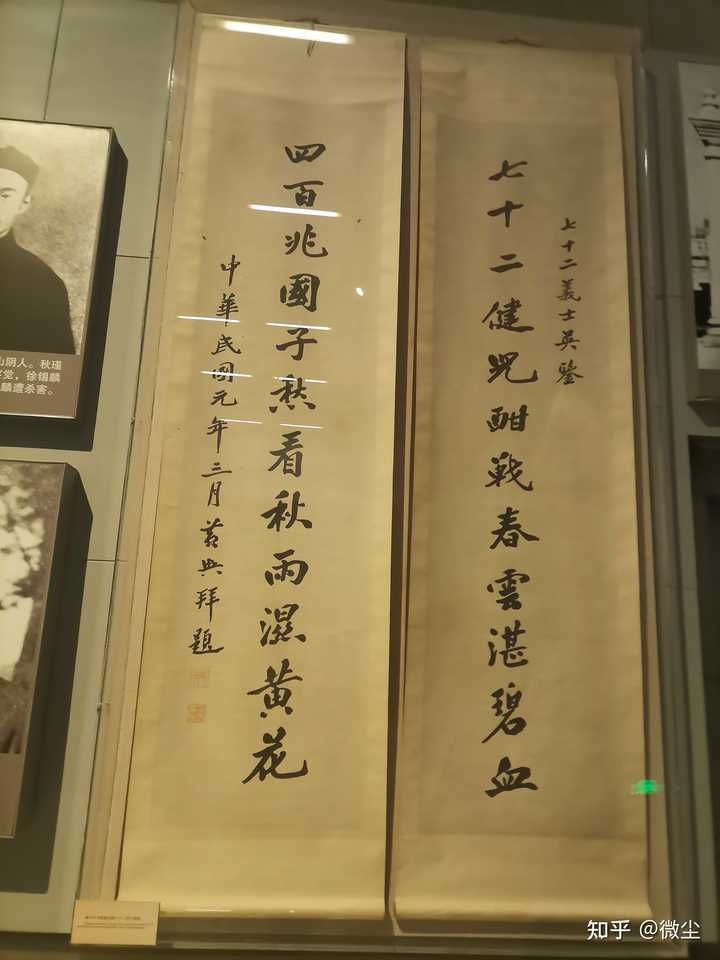 七十二義士英鑒
七十二健兒酣戰春雲湛碧血
四百兆國子愁看秋雨濕黄花
中華民國元年三月黃興拜題
山阴人。秋瑾
觉，徐锡麟
麟遭杀害。
知乎 @微尘